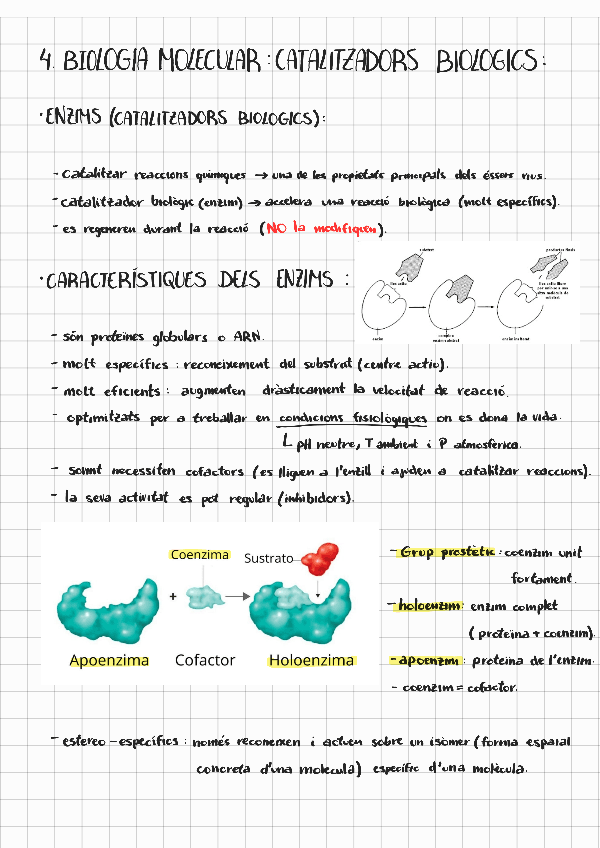 4. BIOLOGIA MOLECULAR: CATALITZADORS BIOLOGICS:
· ENZIMS (CATALITZADORS BIOLOGICS):
- catalitzar reaccions químiques → una de les propietats principals dels éssers vius.
- catalitzador biològic (enzim) → accelera una reacció biològica (molt específics).
- es regeneren durant la reacció (NO la modifiquen).
· CARACTERÍSTIQUES DELS ENZIMS :
- són proteïnes globulars o ARN.
- molt específics : reconeixement del substrat (centre actiu).
- molt eficients : augmenten dràsticament la velocitat de reacció.
- optimitzats per a treballar en condicions fisiològiques on es dona la vida.
L pH neutre, T ambient i P atmosfèrica.
- solint necessiten cofactors (es lliguen a l'enzill i ajuden a catalitzar reaccions).
- la seva activitat es pot regular (inhibidors).
Coenzima
Sustrato
+
Apoenzima Cofactor Holoenzima
- Grup prostètic : coenzim unit
fortament.
- holoenzim: enzim complet
(proteïna + coenzim).
- apoenzim : proteïna de l'enzim.
- coenzim = cofactor.
- estereo-específics : només reconeixen i actuen sobre un isòmer (forma espaial
concreta d'una molecula) específic d'una molècula.